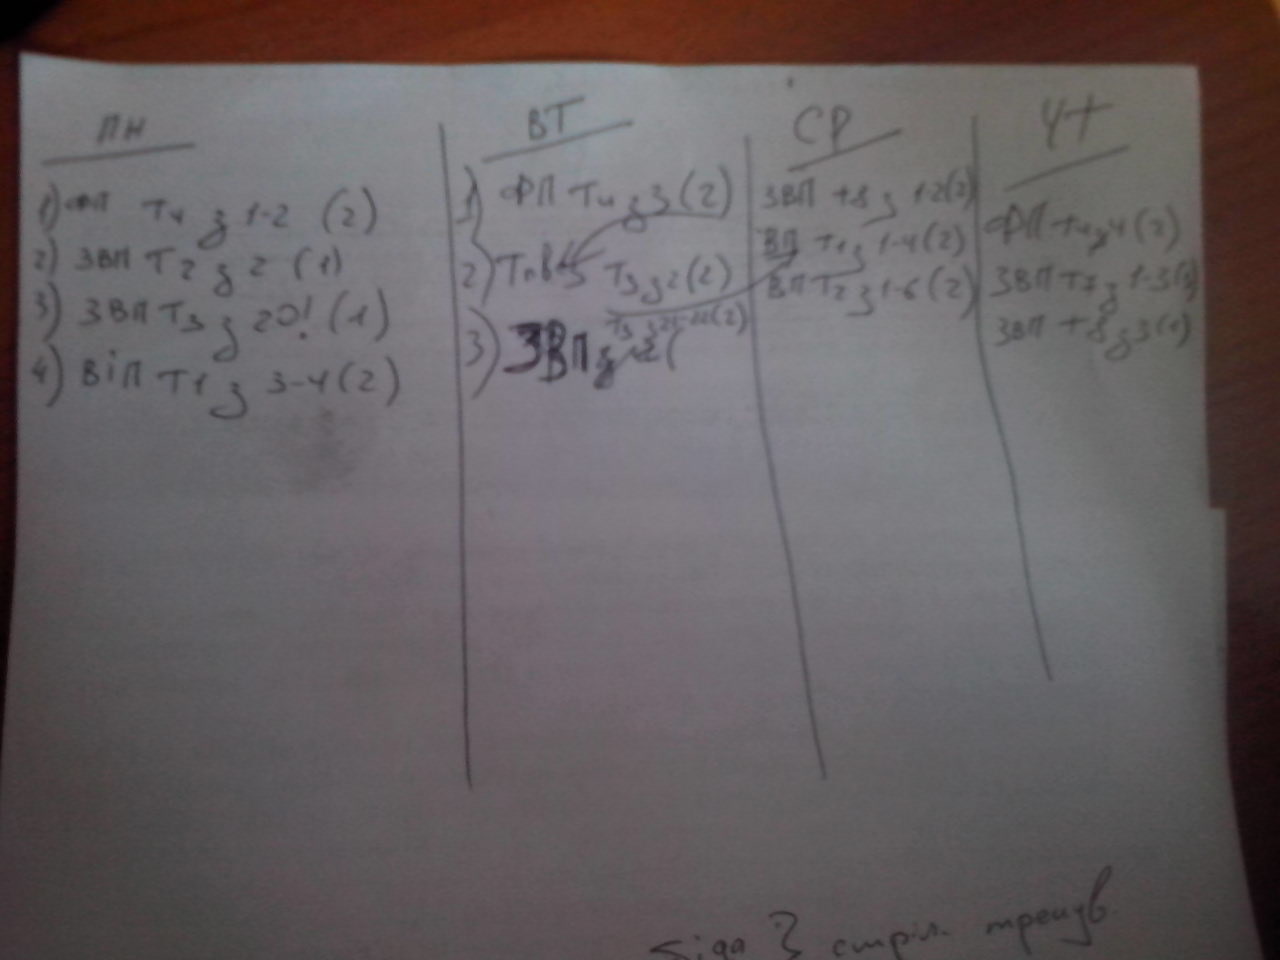 ПН
1) ФП Т4 з 1-2 (2)
2) ЗВП Т2 з 2 (1)
3) ЗВП Т3 з 20! (1)
4) ВіП Т1 з 3-4 (2)
ВТ
1) ФП Т4 з 3 (2)
2) Т3 з 2 (2)
Т3 з 21-22 (2)
3) ЗВП з 2 (
СР
ЗВП т8 з 1-2 (2)
ВП Т1 з 1-4 (2)
ВП Т2 з 1-6 (2)
ЧТ
ФП Т4 з 4 (2)
ЗВП Т7 з 1-3 (3)
ЗВП т8 з 3 (1)
З стріл. тренув